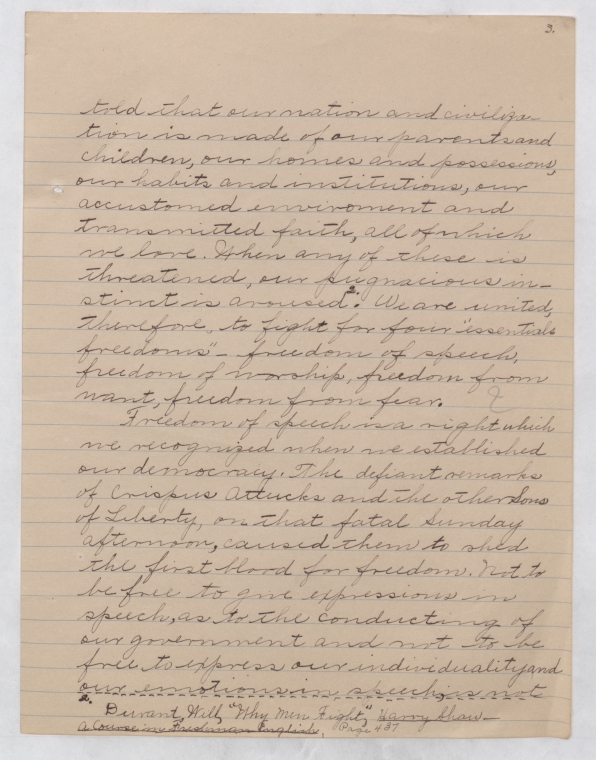 3.
told that our nation and civiliza-
tion is made of our parents and
children, our homes and possessions,
our habits and institutions, our
accustomed enviroment and
transmitted faith, all of which
we love. When any of these is
threatened, our pugnacious in-
stinct is aroused."2. We are united,
therefore, to fight for four "essentials
freedoms" - freedom of speech,
freedom of worship, freedom from
want, freedom from fear.
Freedom of speech is a right which
we recognized when we established
our democracy. The defiant remarks
of Crispus Attucks and the other Sons
of Liberty, on that fatal Sunday
afternoon, caused them to shed
the first blood for freedom. Not to
be free to give expressions in
speech, as to the conducting of
our government and not to be
free to express our individuality and
our emotions in speech, is not
2. Durant, Will, "Why Men Fight", Harry Shaw-
A Course in Freshman English, Page 437